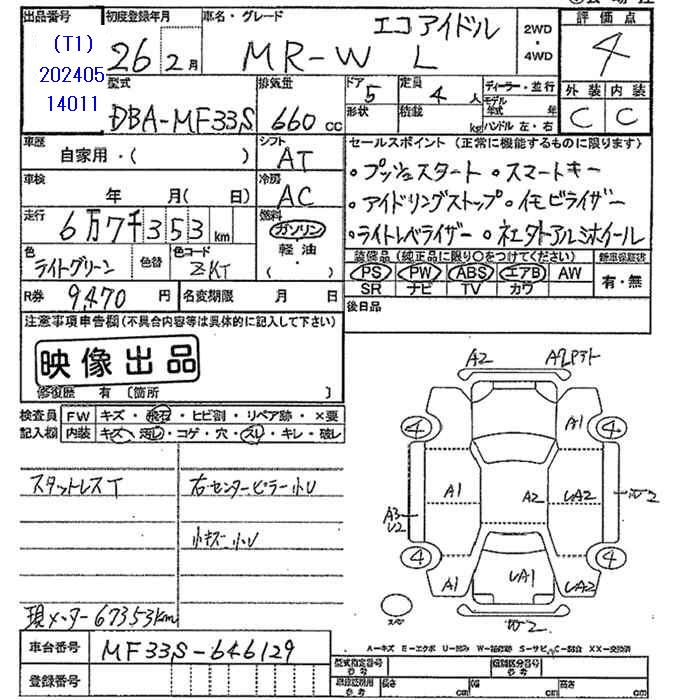 出品番号 初度登録年月 車名・グレード エコアイドル 2WD ・ 4WD 評価点
(T1) 26年2月 MR-W L 4
202405
14011
型式 排気量 ドア 5 定員 4人 ディーラー・並行 外装 内装
DBA-MF33S 660cc 形状 積載 kg モデル年式 年 C C
ハンドル 左・右
車歴 シフト セールスポイント (正常に機能するものに限ります)
自家用・( ) AT ・プッシュスタート ・スマートキー
車検 冷房 ・アイドリングストップ ・イモビライザー
年 月( 日) AC
走行 燃料 ・ライトレベライザー ・社外アルミホイール
6万7千353km ガソリン
色 色替 色コード 軽油 装備品(純正品に限り○をつけてください) 新車保証書
ライトグリーン ZKT ( ) PS PW ABS エアB AW 有・無
R券 9,470円 名変期限 月 日 SR ナビ TV カワ
注意事項申告欄(不具合内容等は具体的に記入して下さい) 後日品
映像出品
修復歴 有 〔箇所 〕
検査員 FW キズ・飛石・ヒビ割・リペア跡・×要
記入欄 内装 キズ・汚レ・コゲ・穴・スレ・キレ・破レ
A2
A1
4 4
スタットレスT 右センターピラー小U A1 A2 UA2 W2
A3
U2
小キズ 小U
4 4
A1 UA1 UA2
スペア
W2
現メーター 67353km
A=キズ E=エクボ U=凹み W=補修跡 S=サビ C=腐食 XX=交換済
車台番号 MF33S-646129
型式指定番号 類別区分番号
参考 参考
登録番号 長さ cm 幅 cm 高さ cm